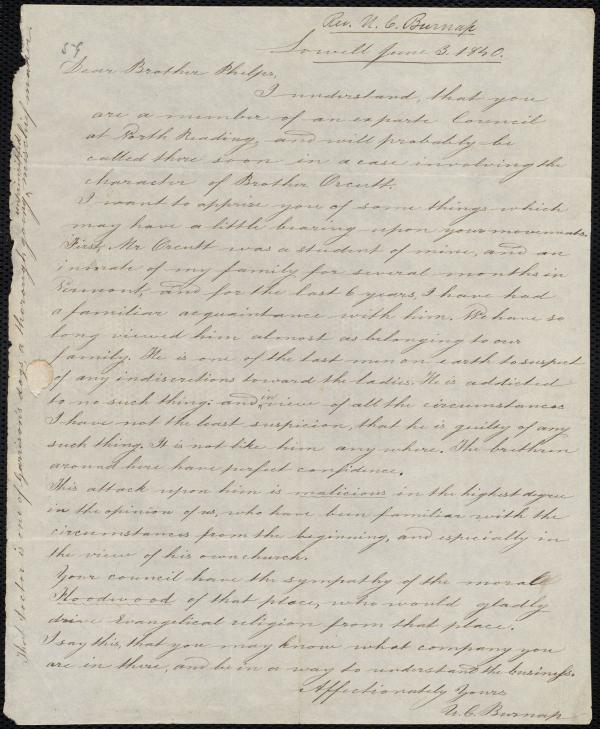 Rev. U. C. Burnap
59
Lowell June 3. 1840.
Dear Brother Phelps,
I understand, that you
are a member of an exparte Council
at North Reading, and will probably be
called there soon in a case involving the
character of Brother Orcutt.
I want to apprise you of some things which
may have a little bearing upon your movements.
First, Mr Orcutt was a student of mine, and an
inmate of my family for several months in
Vermont, and for the last 6 years, I have had
a familiar acquaintance with him. We have so
long viewed him almost as belonging to our
family. He is one of the last men on earth to suspect
of any indiscretions toward the ladies. He is addicted
to no such thing; and in view of all the circumstances
I have not the least suspicion, that he is guilty of any
such thing. It is not like him any where. The brethren
around here have perfect confidence.
This attack upon him is malicious in the highest degree
in the opinion of us, who have been familiar with the
circumstances from the beginning, and especially in
the view of his own church.
Your council have the sympathy of the moral
Hoodwood of that place, who would gladly
drive Evangelical religion from that place.
I say this, that you may know what company you
are in there, and be in a way to understand the business.
Affectionately Yours
U. C. Burnap
That Doctor is one of Garrison's dogs a thorough going mischief maker